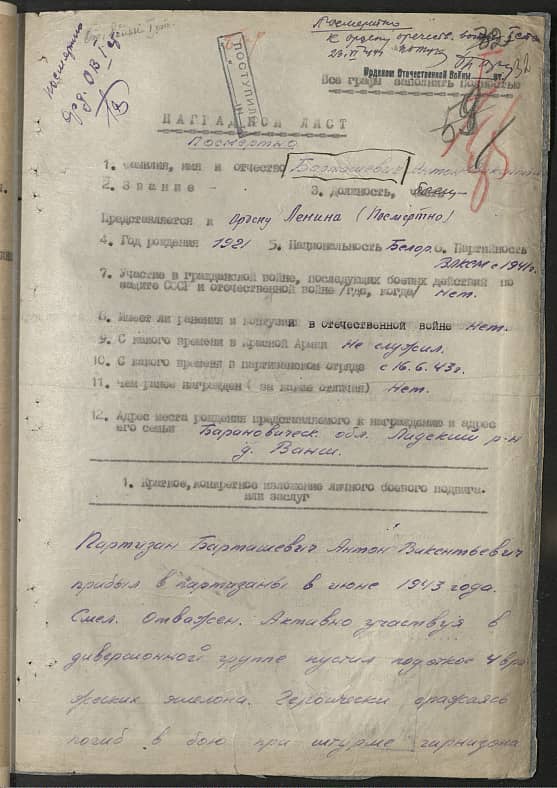 Посмертно
к ордену отечеств. войны I ст.
посмертно
орд. ОВ I ст.
ПОСТУПИЛ
Орденом Отечественной Войны ст.
Все графы заполнять полностью
НАГРАДНОЙ ЛИСТ
Посмертно
1. Фамилия, имя и отчество Барташевич Антон Викентьевич
2. Звание - 3. Должность, часть боец
Представляется к Ордену Ленина (Посмертно)
4. Год рождения 1921 5. Национальность Белор. 6. Партийность
ВЛКСМ с 1941г.
7. Участие в гражданской войне, последующих боевых действий по
защите СССР и отечественной войне /где, когда/ Нет.
8. Имеет ли ранения и контузии в отечественной войне Нет.
9. С какого времени в Красной Армии Не служил.
10. С какого времени в партизанском отряде с 16.6.43г.
11. Чем ранее награжден ( за какие отличия) Нет.
12. Адрес места рождения представляемого к награждению и адрес
его семьи Барановическ. обл. Лидский р-н
д. Ванги.
1. Краткое, конкретное изложение личного боевого подвига
или заслуг
Партизан Барташевич Антон Викентьевич
прибыл в партизаны в июне 1943 года.
Смел. Отважен. Активно участвуя в
диверсионной группе пустил под откос 4 вра-
жеских эшелона. Героически сражаясь
погиб в бою при штурме гарнизона